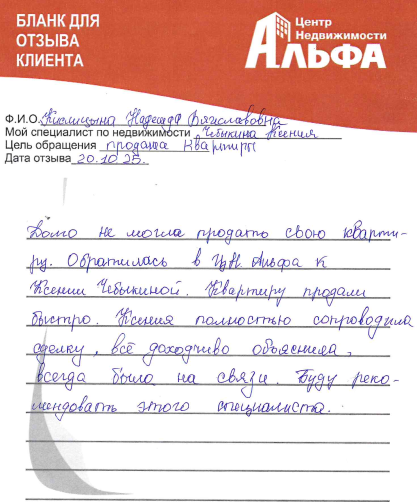 БЛАНК ДЛЯ
ОТЗЫВА
КЛИЕНТА
Центр
Недвижимости
АЛЬФА
Ф.И.О. Кислицына Надежда Вячеславовна
Мой специалист по недвижимости Чебыкина Ксения
Цель обращения продажа квартиры
Дата отзыва 20.10.25.
Долго не могла продать свою кварти-
ру. Обратилась в ЦН Альфа к
Ксении Чебыкиной. Квартиру продали
быстро. Ксения полностью сопроводила
сделку, всё доходчиво объяснила,
всегда была на связи. Буду реко-
мендовать этого специалиста.